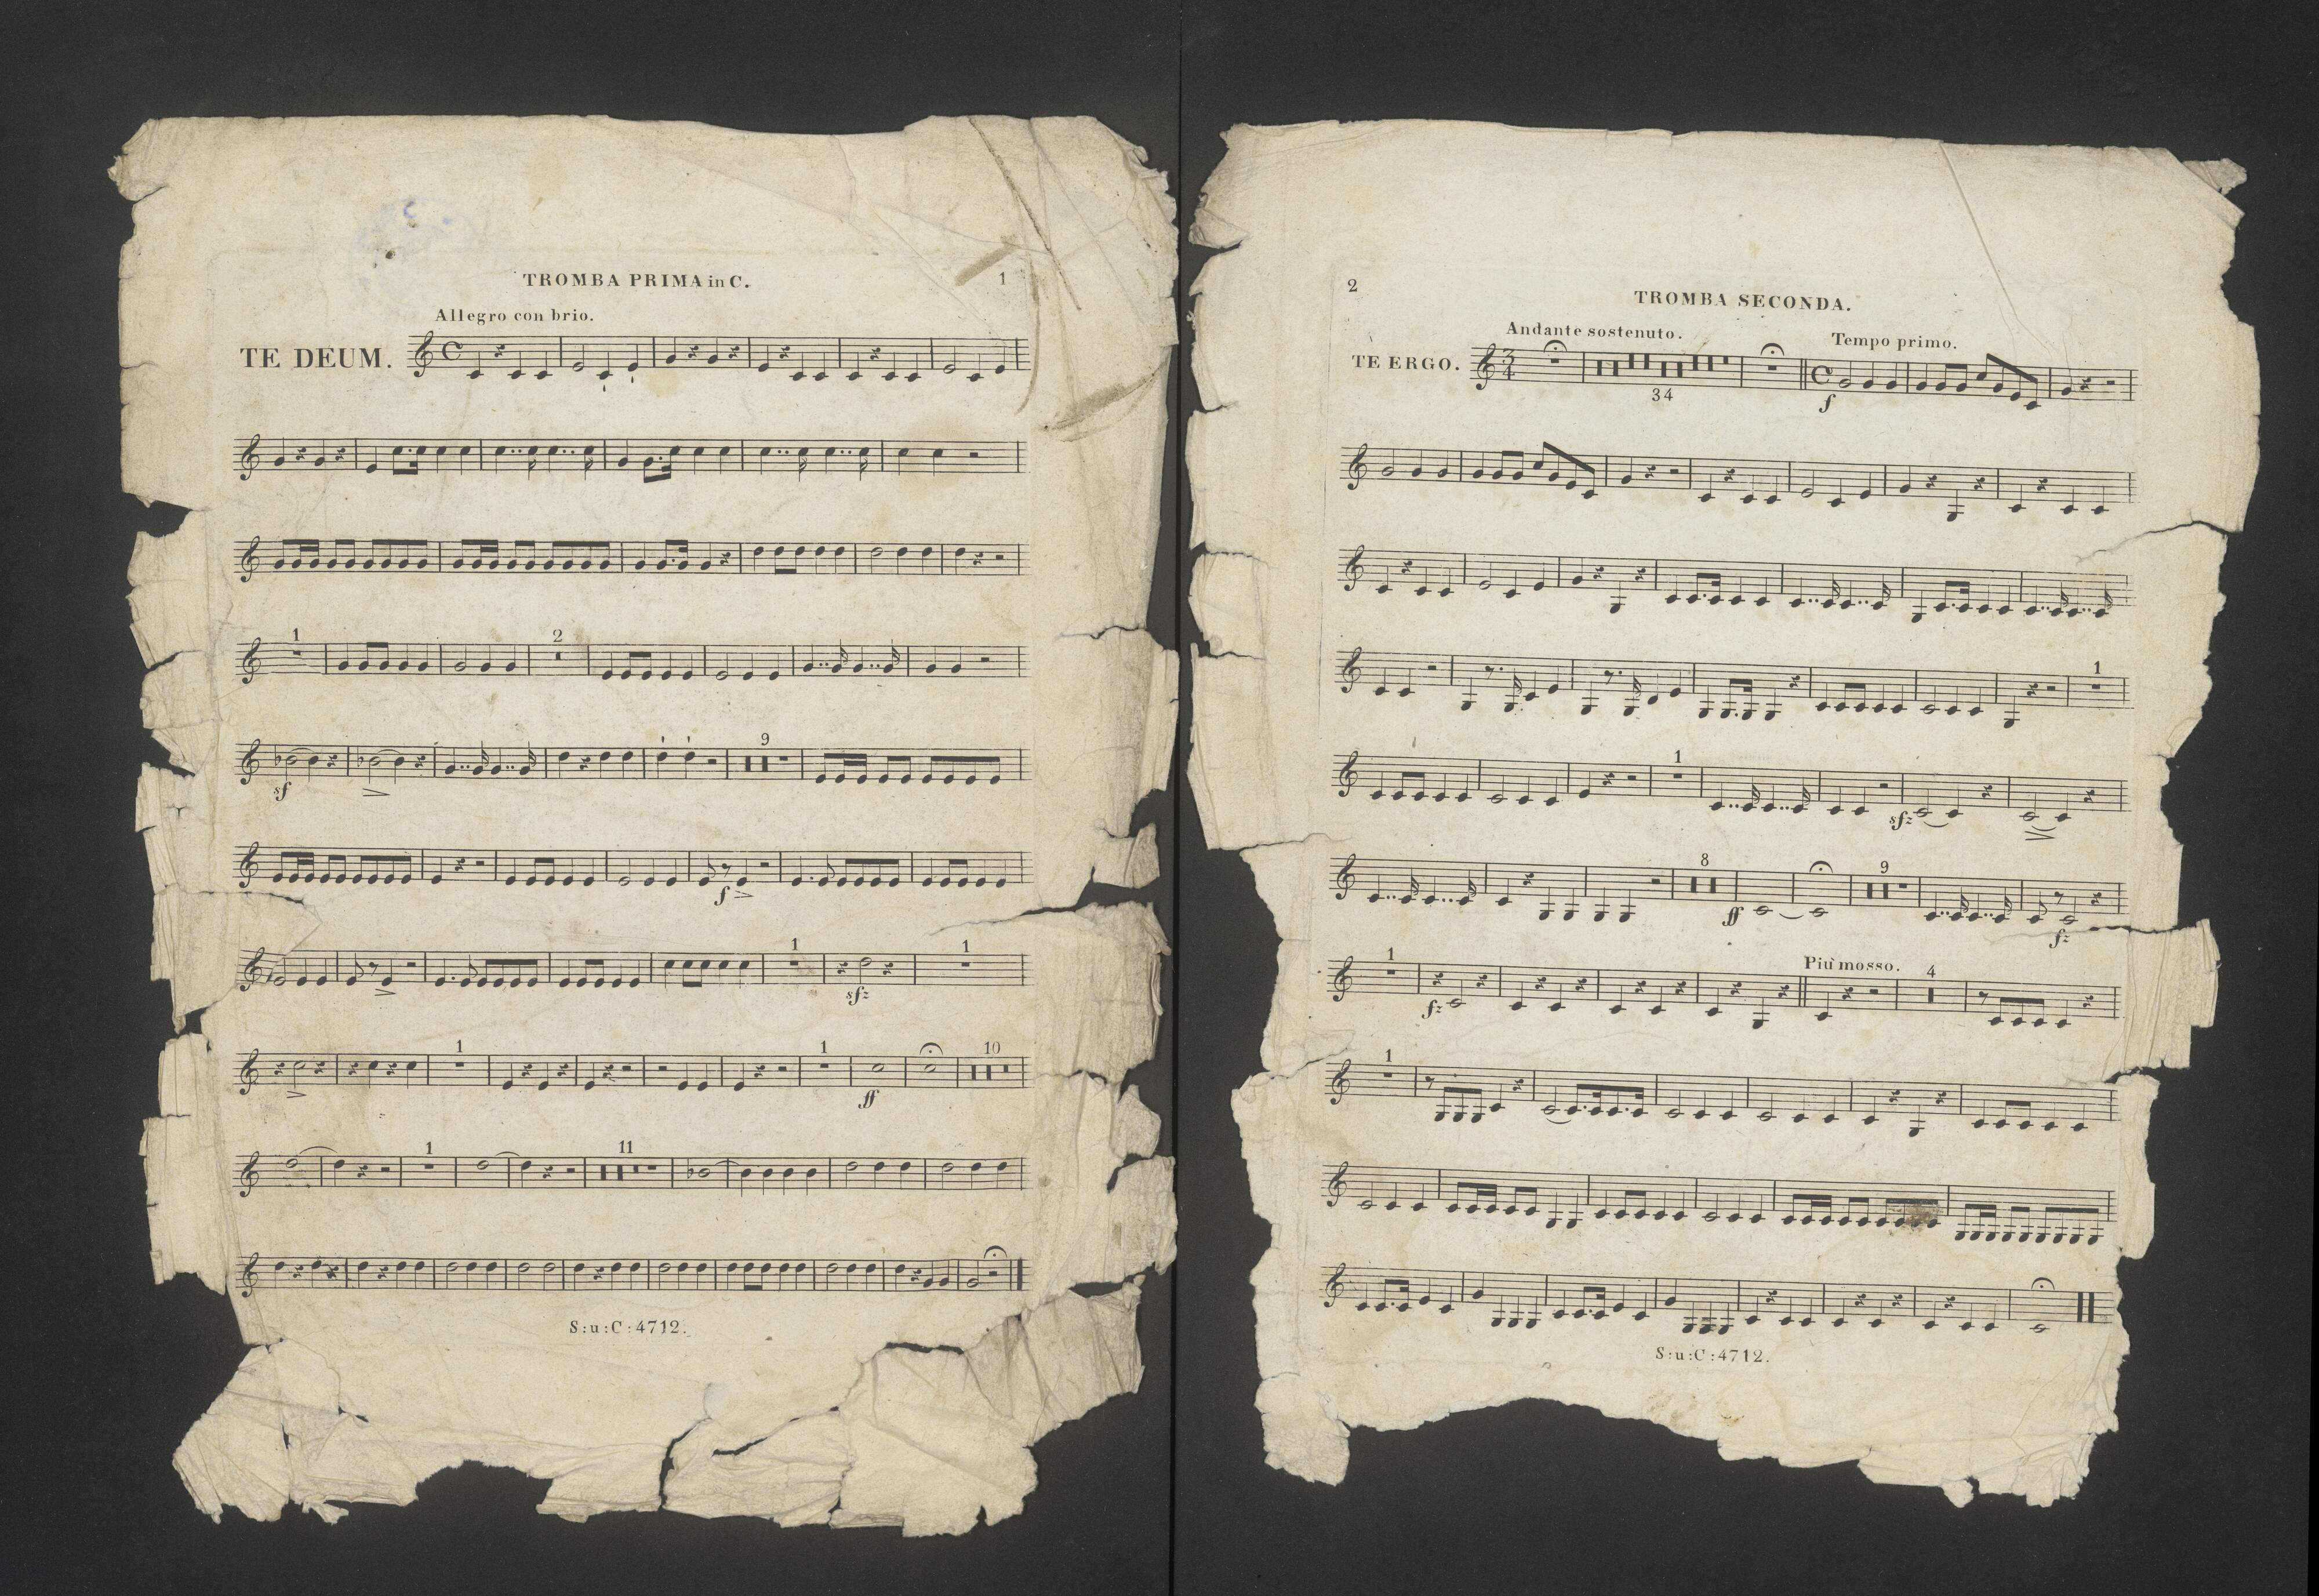 TROMBA PRIMA in C.
1
Allegro con brio.
TE DEUM.
1
2
sf
9
f
1
sfz
1
1
1
ff
10
1
11
S:u:C:4712.
2
TROMBA SECONDA.
Andante sostenuto.
Tempo primo.
TE ERGO.
34
f
1
1
sfz
8
ff
9
fz
1
fz
Più mosso.
4
1
S:u:C:4712.